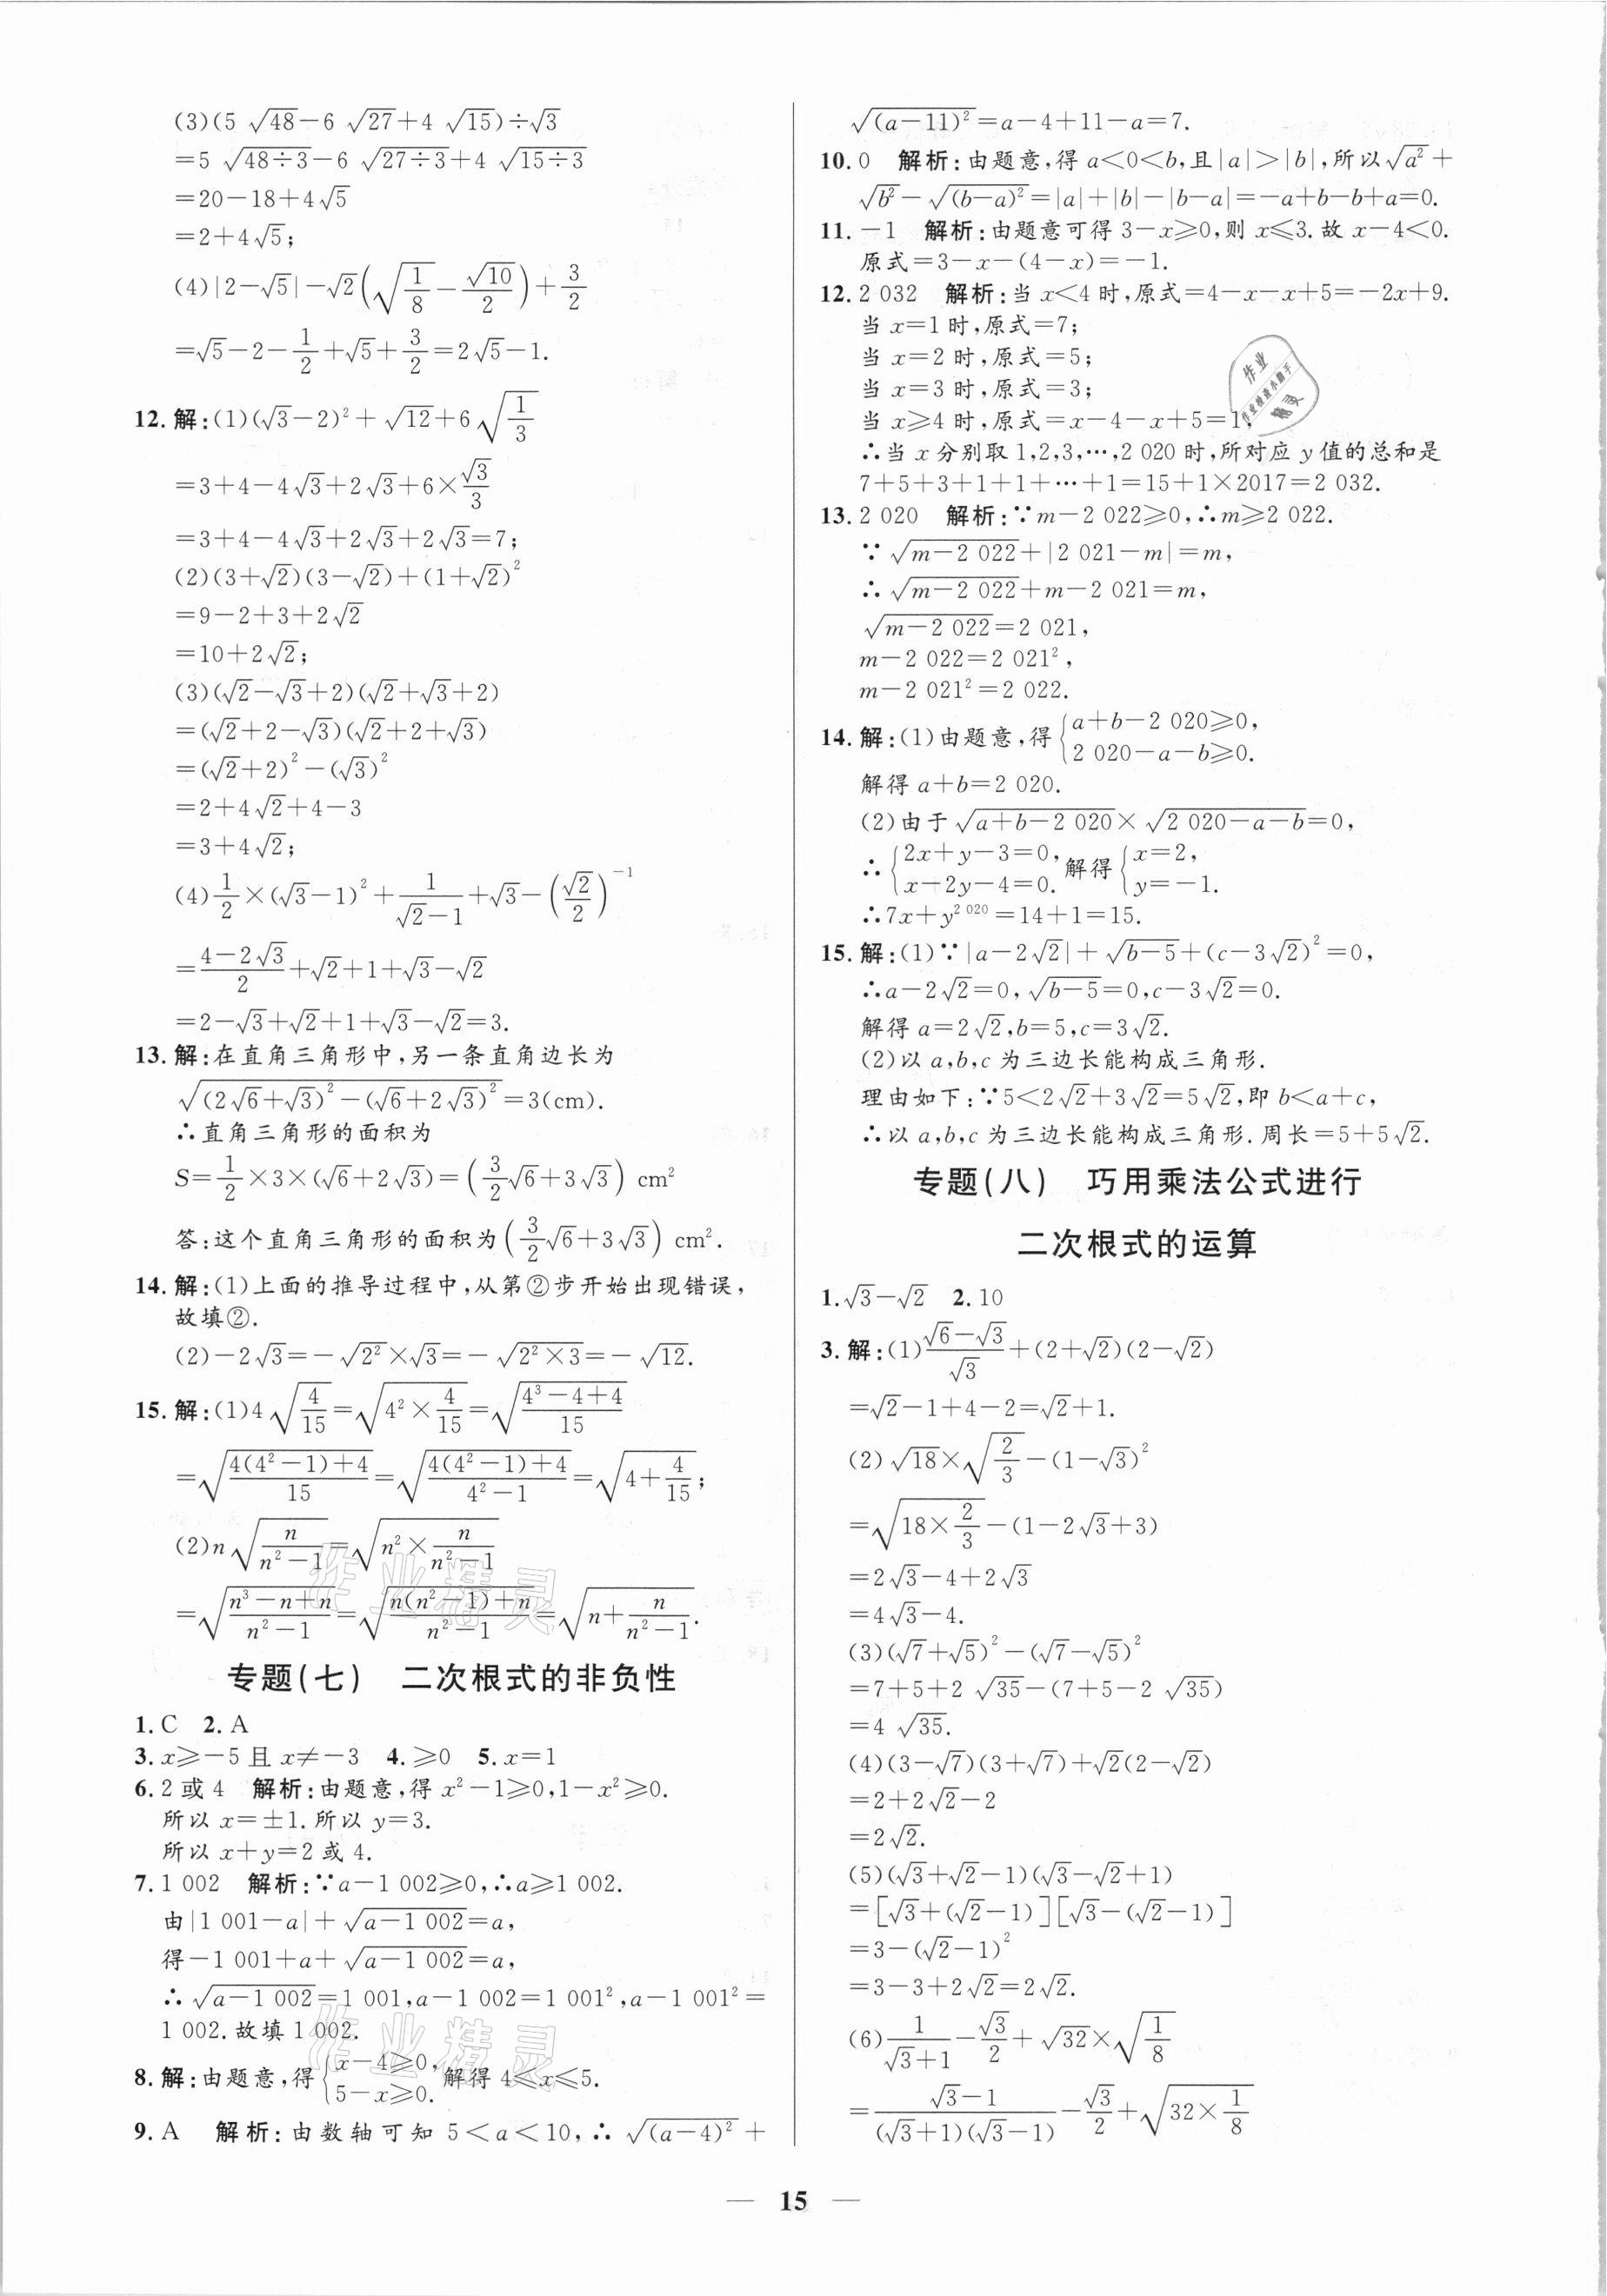 (3)(5√48−6√27+4√15)÷√3
=5√(48÷3)−6√(27÷3)+4√(15÷3)
=20−18+4√5
=2+4√5;
(4)|2−√5|−√2(√(1/8)−√10/2)+3/2
=√5−2−1/2+√5+3/2=2√5−1.
12.解:(1)(√3−2)²+√12+6√(1/3)
=3+4−4√3+2√3+6×√3/3
=3+4−4√3+2√3+2√3=7;
(2)(3+√2)(3−√2)+(1+√2)²
=9−2+3+2√2
=10+2√2;
(3)(√2−√3+2)(√2+√3+2)
=(√2+2−√3)(√2+2+√3)
=(√2+2)²−(√3)²
=2+4√2+4−3
=3+4√2;
(4)1/2×(√3−1)²+1/(√2−1)+√3−(√2/2)⁻¹
=(4−2√3)/2+√2+1+√3−√2
=2−√3+√2+1+√3−√2=3.
13.解:在直角三角形中,另一条直角边长为
√((2√6+√3)²−(√6+2√3)²)=3(cm).
∴直角三角形的面积为
S=1/2×3×(√6+2√3)=(3/2√6+3√3) cm²
答:这个直角三角形的面积为(3/2√6+3√3) cm².
14.解:(1)上面的推导过程中,从第②步开始出现错误,
故填②.
(2)−2√3=−√2²×√3=−√(2²×3)=−√12.
15.解:(1)4√(4/15)=√(4²×4/15)=√((4³−4+4)/15)
=√((4(4²−1)+4)/15)=√((4(4²−1)+4)/(4²−1))=√(4+4/15);
(2)n√(n/(n²−1))=√(n²×n/(n²−1))
=√((n³−n+n)/(n²−1))=√((n(n²−1)+n)/(n²−1))=√(n+n/(n²−1)).
专题(七) 二次根式的非负性
1.C 2.A
3.x≥−5且x≠−3 4.≥0 5.x=1
6.2或4 解析:由题意,得x²−1≥0,1−x²≥0.
所以x=±1.所以y=3.
所以x+y=2或4.
7.1 002 解析:∵a−1 002≥0,∴a≥1 002.
由|1 001−a|+√(a−1 002)=a,
得−1 001+a+√(a−1 002)=a,
∴√(a−1 002)=1 001,a−1 002=1 001²,a−1 001²=
1 002.故填1 002.
8.解:由题意,得{x−4≥0,5−x≥0.解得4≤x≤5.
9.A 解析:由数轴可知5<a<10,∴√((a−4)²)+
√((a−11)²)=a−4+11−a=7.
10.0 解析:由题意,得a<0<b,且|a|>|b|,所以√a²+
√b²−√((b−a)²)=|a|+|b|−|b−a|=−a+b−b+a=0.
11.−1 解析:由题意可得3−x≥0,则x≤3.故x−4<0.
原式=3−x−(4−x)=−1.
12.2 032 解析:当x<4时,原式=4−x−x+5=−2x+9.
当x=1时,原式=7;
当x=2时,原式=5;
当x=3时,原式=3;
当x≥4时,原式=x−4−x+5=1,
∴当x分别取1,2,3,…,2 020时,所对应y值的总和是
7+5+3+1+1+…+1=15+1×2017=2 032.
13.2 020 解析:∵m−2 022≥0,∴m≥2 022.
∵√(m−2 022)+|2 021−m|=m,
∴√(m−2 022)+m−2 021=m,
√(m−2 022)=2 021,
m−2 022=2 021²,
m−2 021²=2 022.
14.解:(1)由题意,得{a+b−2 020≥0,2 020−a−b≥0.
解得a+b=2 020.
(2)由于√(a+b−2 020)×√(2 020−a−b)=0,
∴{2x+y−3=0,x−2y−4=0.解得{x=2,y=−1.
∴7x+y²⁰²⁰=14+1=15.
15.解:(1)∵|a−2√2|+√(b−5)+(c−3√2)²=0,
∴a−2√2=0,√(b−5)=0,c−3√2=0.
解得a=2√2,b=5,c=3√2.
(2)以a,b,c为三边长能构成三角形.
理由如下:∵5<2√2+3√2=5√2,即b<a+c,
∴以a,b,c为三边长能构成三角形.周长=5+5√2.
专题(八) 巧用乘法公式进行
二次根式的运算
1.√3−√2 2.10
3.解:(1)(√6−√3)/√3+(2+√2)(2−√2)
=√2−1+4−2=√2+1.
(2)√18×√(2/3)−(1−√3)²
=√(18×2/3)−(1−2√3+3)
=2√3−4+2√3
=4√3−4.
(3)(√7+√5)²−(√7−√5)²
=7+5+2√35−(7+5−2√35)
=4√35.
(4)(3−√7)(3+√7)+√2(2−√2)
=2+2√2−2
=2√2.
(5)(√3+√2−1)(√3−√2+1)
=[√3+(√2−1)][√3−(√2−1)]
=3−(√2−1)²
=3−3+2√2=2√2.
(6)1/(√3+1)−√3/2+√32×√(1/8)
=(√3−1)/((√3+1)(√3−1))−√3/2+√(32×1/8)
— 15 —
作业精灵
作业精灵
作业
作业检查小助手
精灵